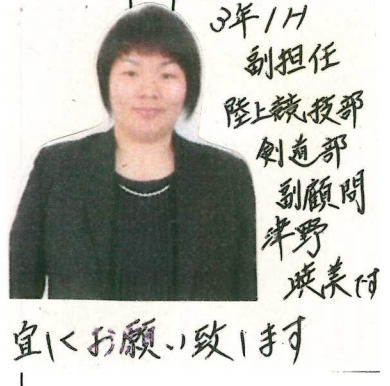 3年1H
副担任
陸上競技部
剣道部
副顧問
津野
暎美です
宜しくお願い致します